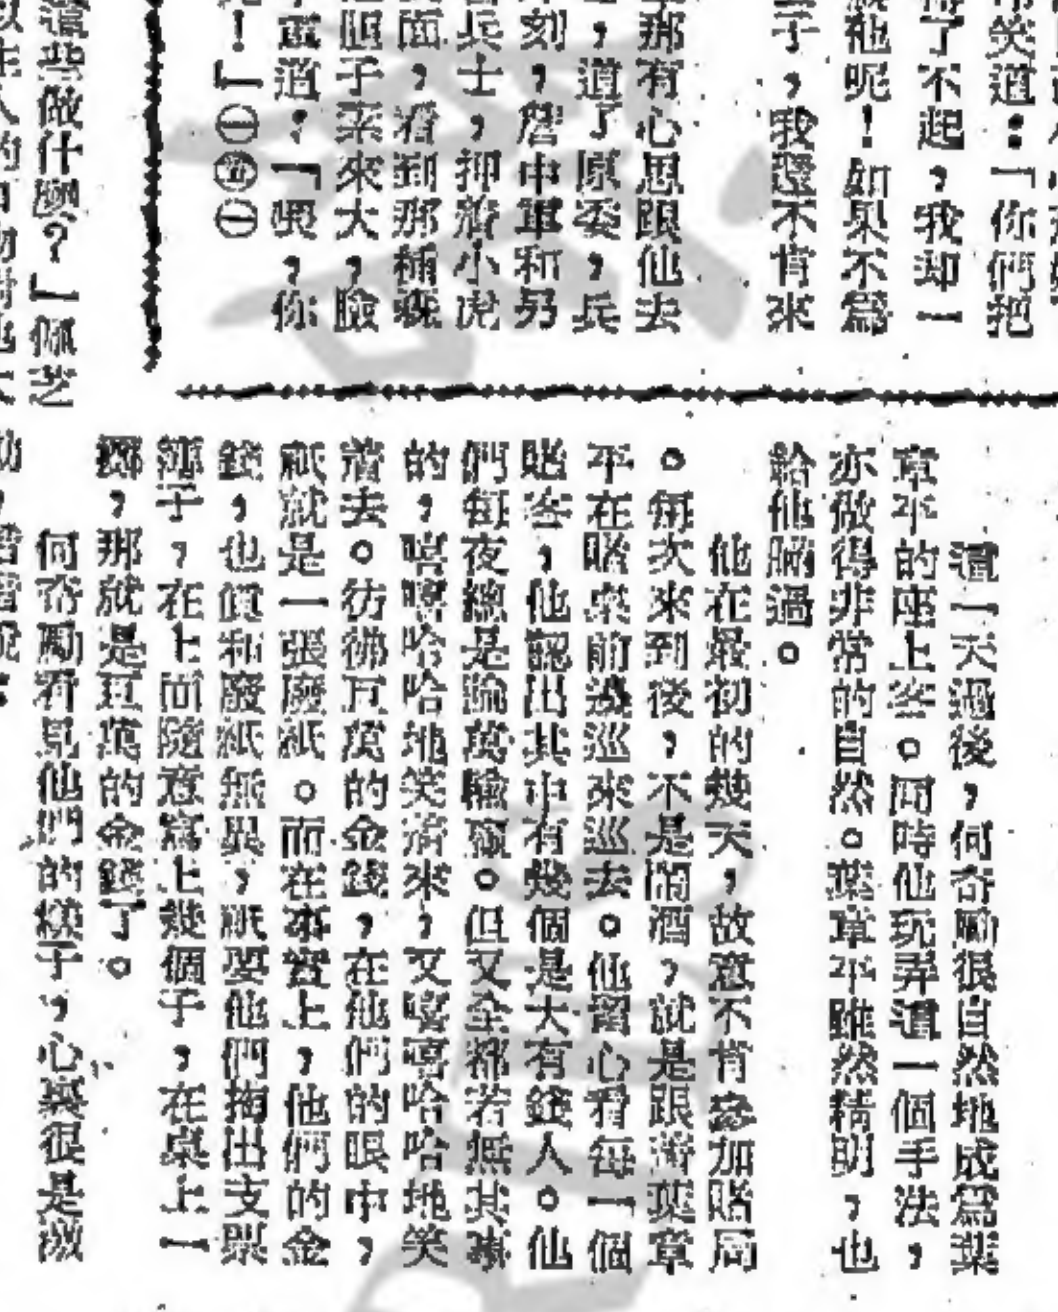 笑道：「你們把
得了不起，我却一
他呢！如果不爲
子，我還不肯來
那有心思跟他去
，道了原委，兵
刻，詹中軍和另
兵士，押着小虎
面，看到那種
胆子素來大，臉
道：「張，你
！」㊀㊀
這些做什麼？」佩芝
這一天過後，何奇勵很自然地成爲葉
章平的座上客。同時他玩弄這一個手法，
亦做得非常的自然。葉章平雖然精明，也
給他瞞過。
他在最初的幾天，故意不肯參加賭局
。每次來到後，不是鬧酒，就是跟着葉章
平在賭桌前邊巡來巡去。他留心看每一個
賭客，他認出其中有幾個是大有錢人。他
們每夜總是輸萬輸。但又全都若無其事
的，嘻嘻哈哈地笑着來，又嘻嘻哈哈地笑
着去。彷彿百萬的金錢，在他們的眼中，
祇就是一張廢紙。而在事實上，他們的金
錢，也真和廢紙無異，祇要他們掏出支票
簿子，在上面隨意寫上幾個字，在桌上一
擲，那就是百萬的金錢了。
何奇勵看見他們的樣子，心裏很是激